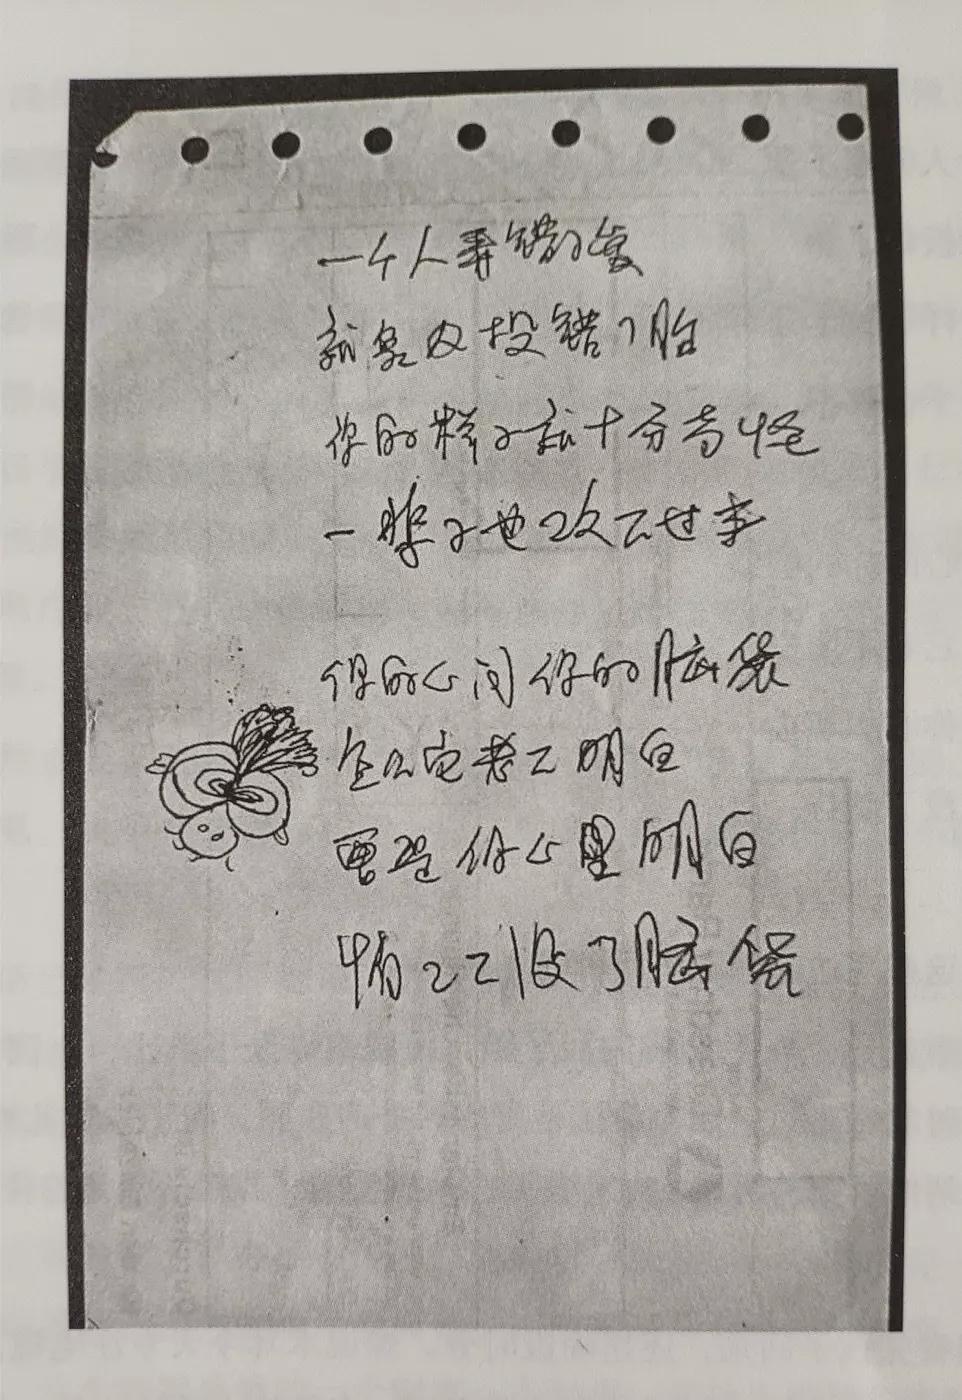 一个人弄错了爱
就象投错了胎
你的样子就十分奇怪
一辈子也改不过来
你的心问你的脑袋
怎么它老不明白
要是你心里明白
没了脑袋